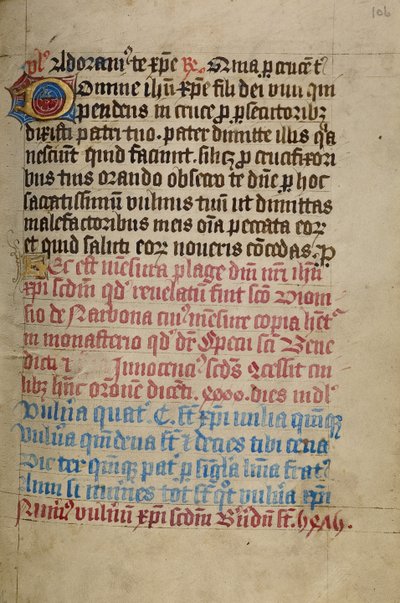 106
Adoramus te xp̄e ℟. Quia p̲ crucem t
Domine ih̄u xp̄e fili dei viui qui
pendens in cruce p̲ p̲secutoribꝫ
dixisti patri tuo. pater dimitte illis q̄a
nesciunt quid faciunt. silicꝫ p̲ crucifixori
bus tuis orando obsecro te dn̄e p̲ hoc
sacratissimum vulnus tuū ut dimittas
malefactoribus meis oīa peccata eoꝝ
et quid saluti eoꝝ noueris cōcedas. P
Hec est mēsura plage dn̄i nr̄i ih̄u
xp̄i scd̄m qd̄ reuelatū fuit sc̄o Dioni
sio de Narbona cuiꝰ mēsure copia het᷑
in monasterio qd̄ dr̄ Specu sc̄i Bene
dicti ⁊ Innocenciꝰ scd̄s 9cessit cui
libꝫ hn̄c orōnē dicēti. 4000. dies indl᷑
Vuln̄a quat᷑. C. st̄ xp̄i milia quīqꝫ
Vuln̄a quīdena st̄ ⁊ decies tibi cena
Dic ter quīqꝫ pat᷑ p̲ sīgl̄a
si numes tot st̄ qͦt vuln̄a xp̄i
Numꝰ vulnū xp̄i scd̄m st̄.